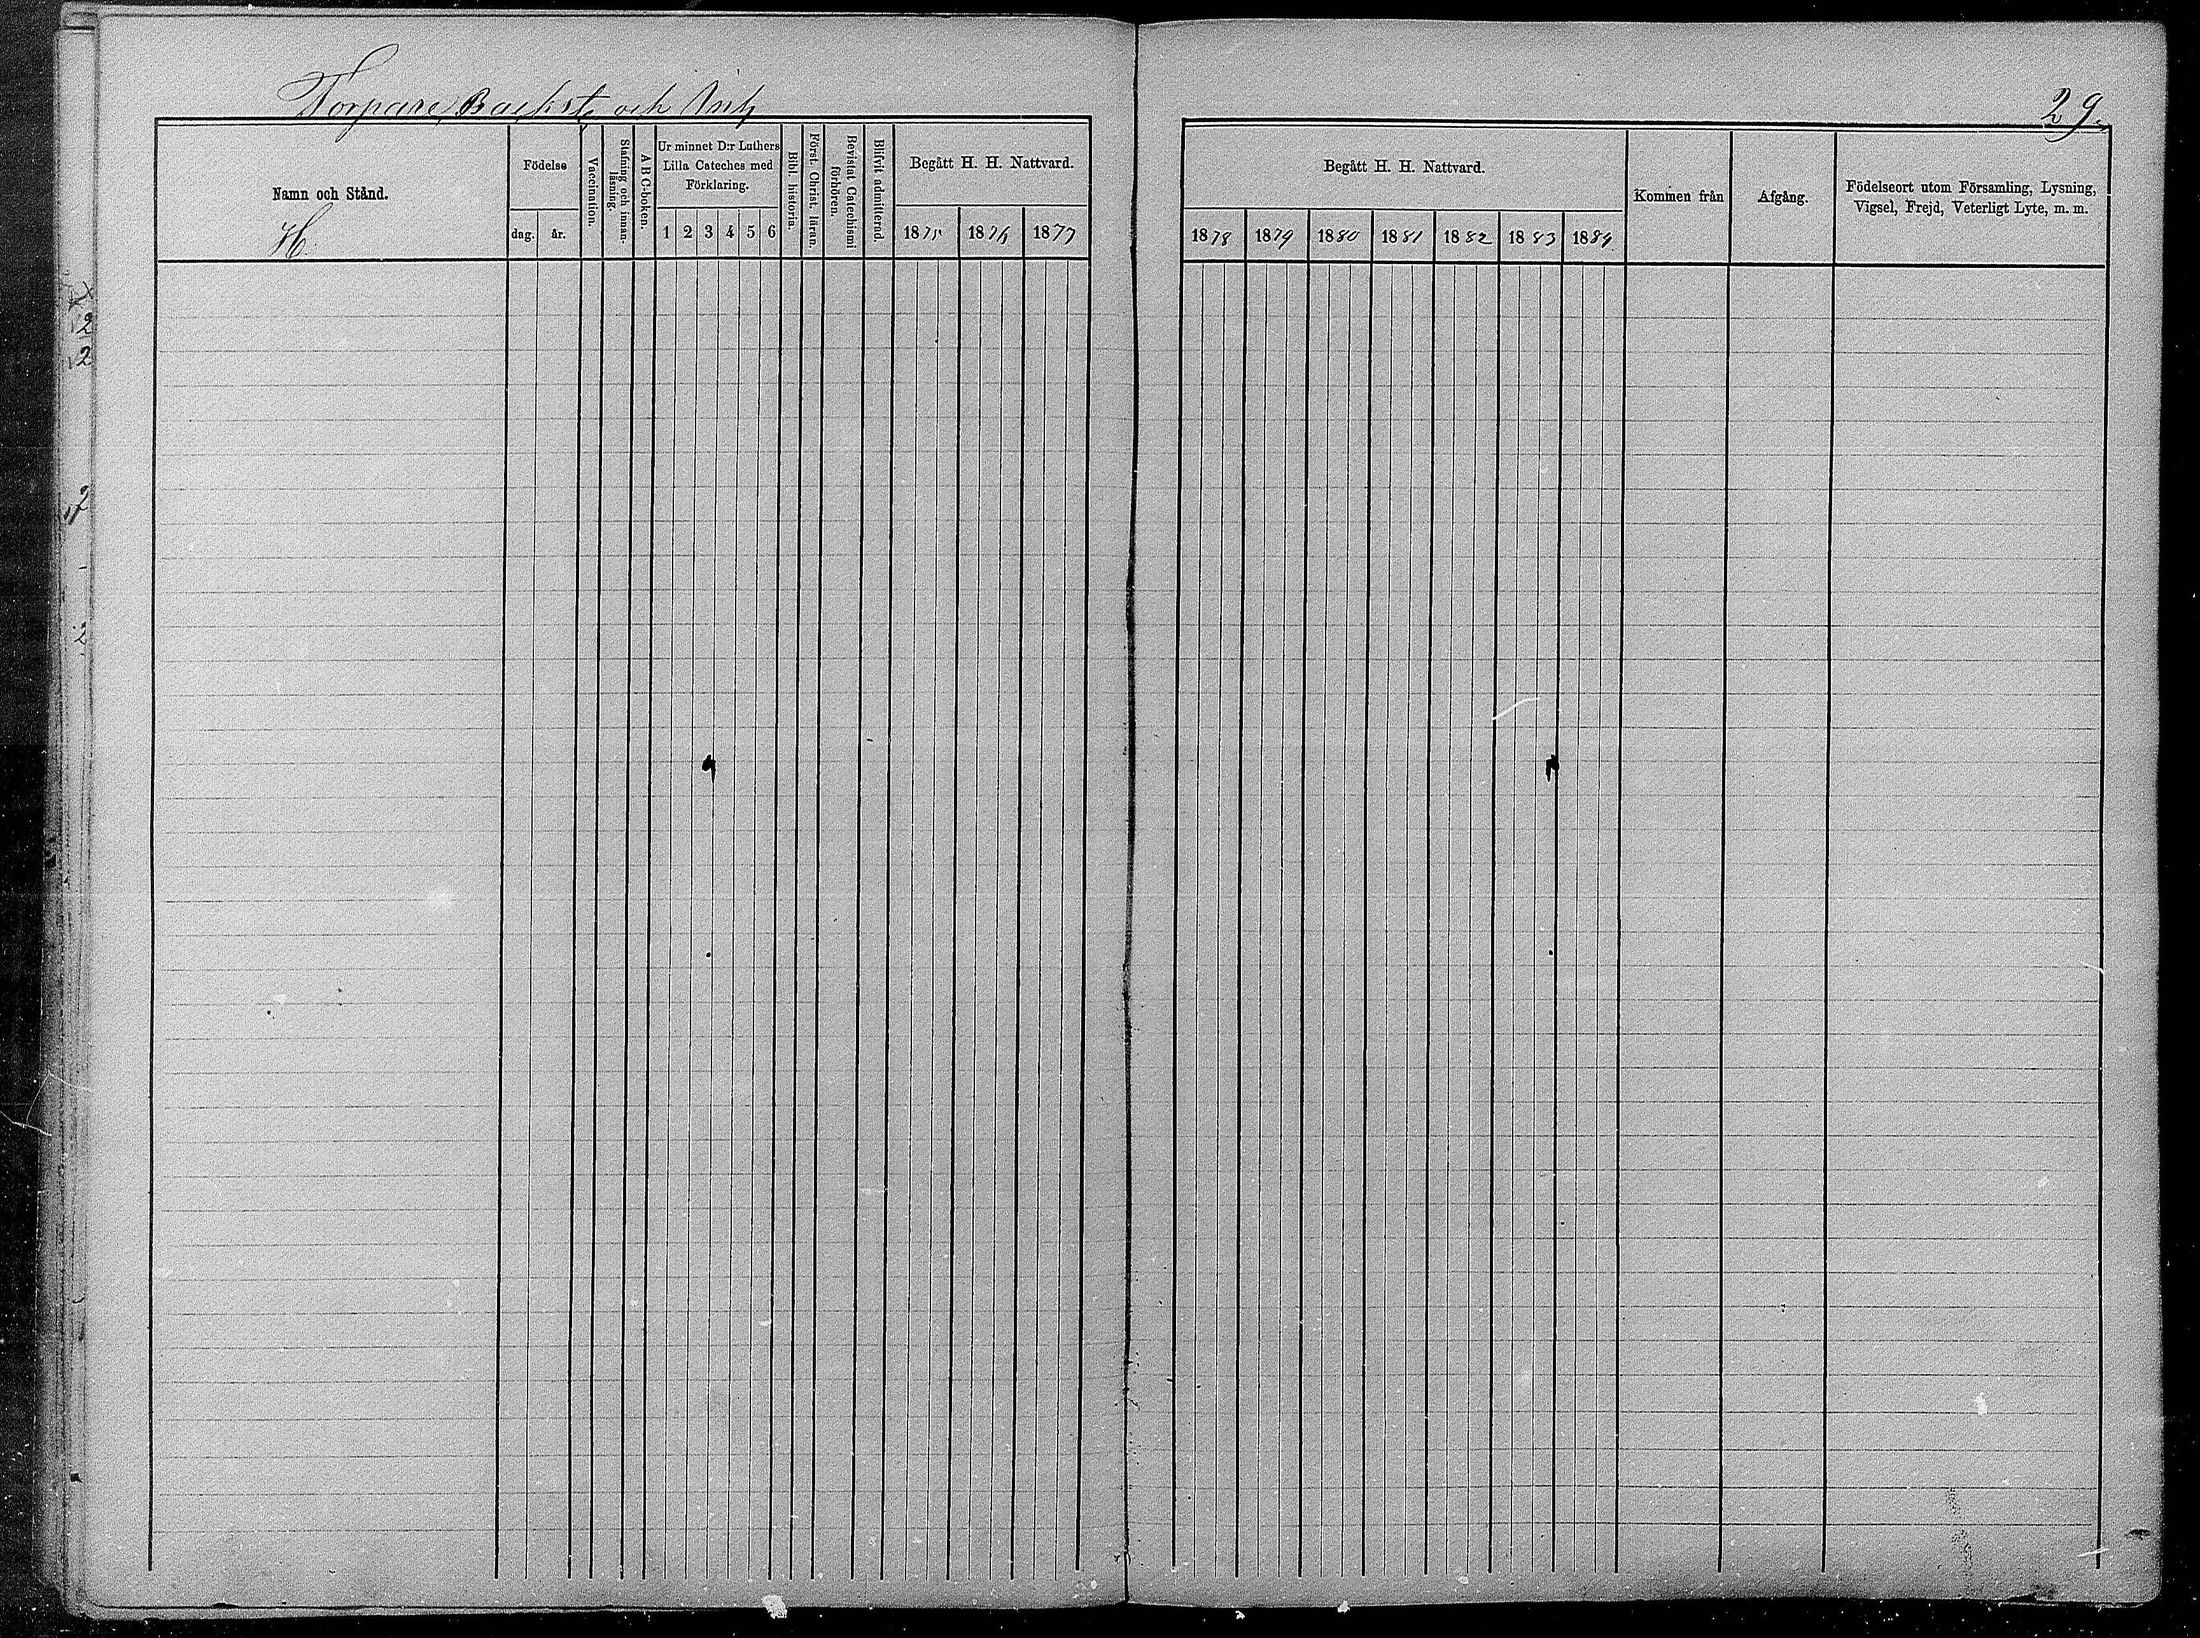 Torpare, Backst, och Inh
29.
Namn och Stånd.
H.
Födelse
dag. år.
Vaccination.
Stafning och innan-
läsning.
A B C-boken.
Ur minnet D:r Luthers
Lilla Cateches med
Förklaring.
1 2 3 4 5 6
Bibl. historia.
Först. Christ. läran.
Bevistat Catechismi
förhören.
Blifvit admitterad.
Begått H. H. Nattvard.
1875 1876 1877
Begått H. H. Nattvard.
1878 1879 1880 1881 1882 1883 1884
Kommen från
Afgång.
Födelseort utom Församling, Lysning,
Vigsel, Frejd, Veterligt Lyte, m. m.